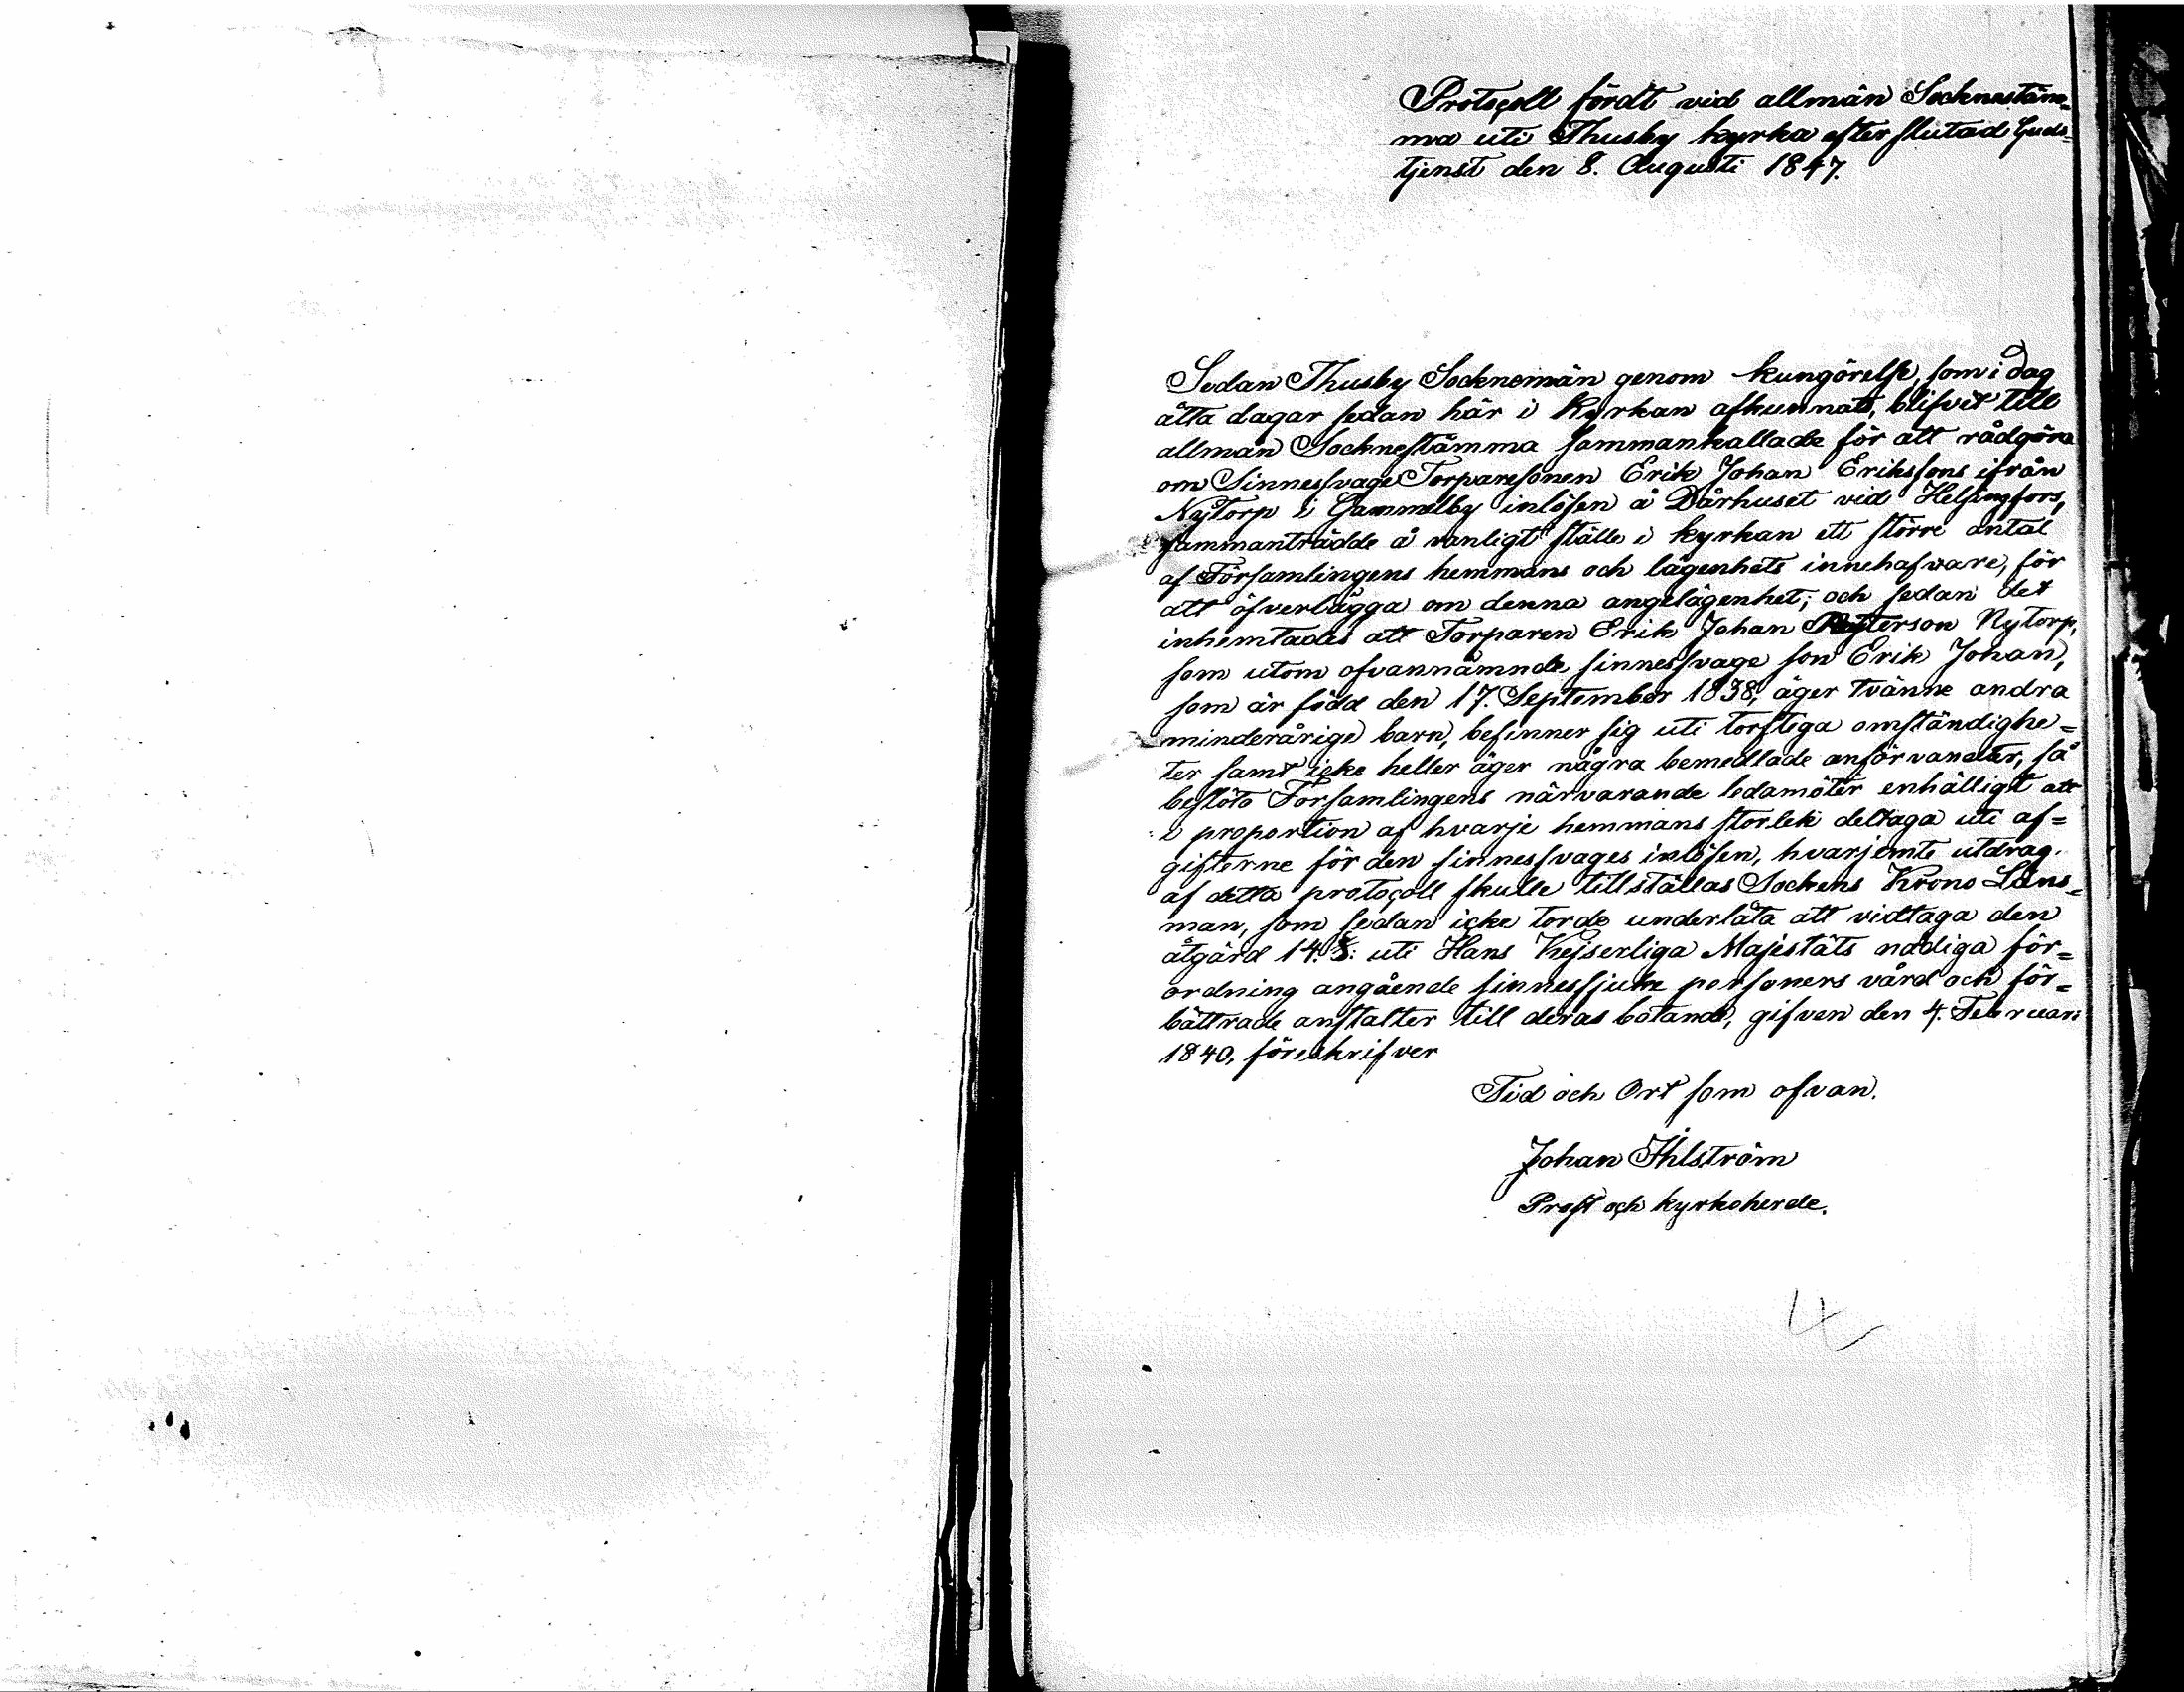 Protocoll fördt vid allmän Socknestäm=
ma uti Thusby kyrka efter slutad Guds=
tjenst den 8. Augusti 1847.
Sedan Thusby Socknemän genom kungörelse, som i dag
åtta dagar sedan här i Kyrkan afkunnats, blifvit till
allmän Socknestämma sammankallade för att rådgöra
om Sinnessvage Torparesonen Erik Johan Erikssons ifrån
Nytorp i Gammelby inlösen å Dårhuset vid Helsingfors,
sammanträdde å vanligt ställe i kyrkan ett större antal
af Församlingens hemmans och lägenhets innehafvare, för
att öfverlägga om denna angelägenhet; och sedan det
inhemtades att Torparen Erik Johan Nytorp,
som utom ofvannämnde sinnessvage son Erik Johan,
som är född den 17. September 1838, äger tvänne andra
minderårige barn, befinner sig uti torftiga omständighe=
ter samt icke heller äger några bemedlade anförvandter, så
beslöto Församlingens närvarande ledamöter enhälligt att
i proportion af hvarje hemmans storlek deltaga uti af=
gifterne för den sinnessvages inlösen, hvarjemte utdrag
af detta protocoll skulle tillställas Sockens Krono Läns=
man, som sedan icke torde underlåta att vidtaga den
åtgärd 14. §: uti Hans Kejserliga Majestäts nådiga för=
ordning angående sinnessjuke personers vård och för=
bättrade anstalter till deras botande, gifven den 4. Februari
1840, föreskrifver
Tid och Ort som ofvan.
Johan Ihlström
Prost och kyrkoherde.